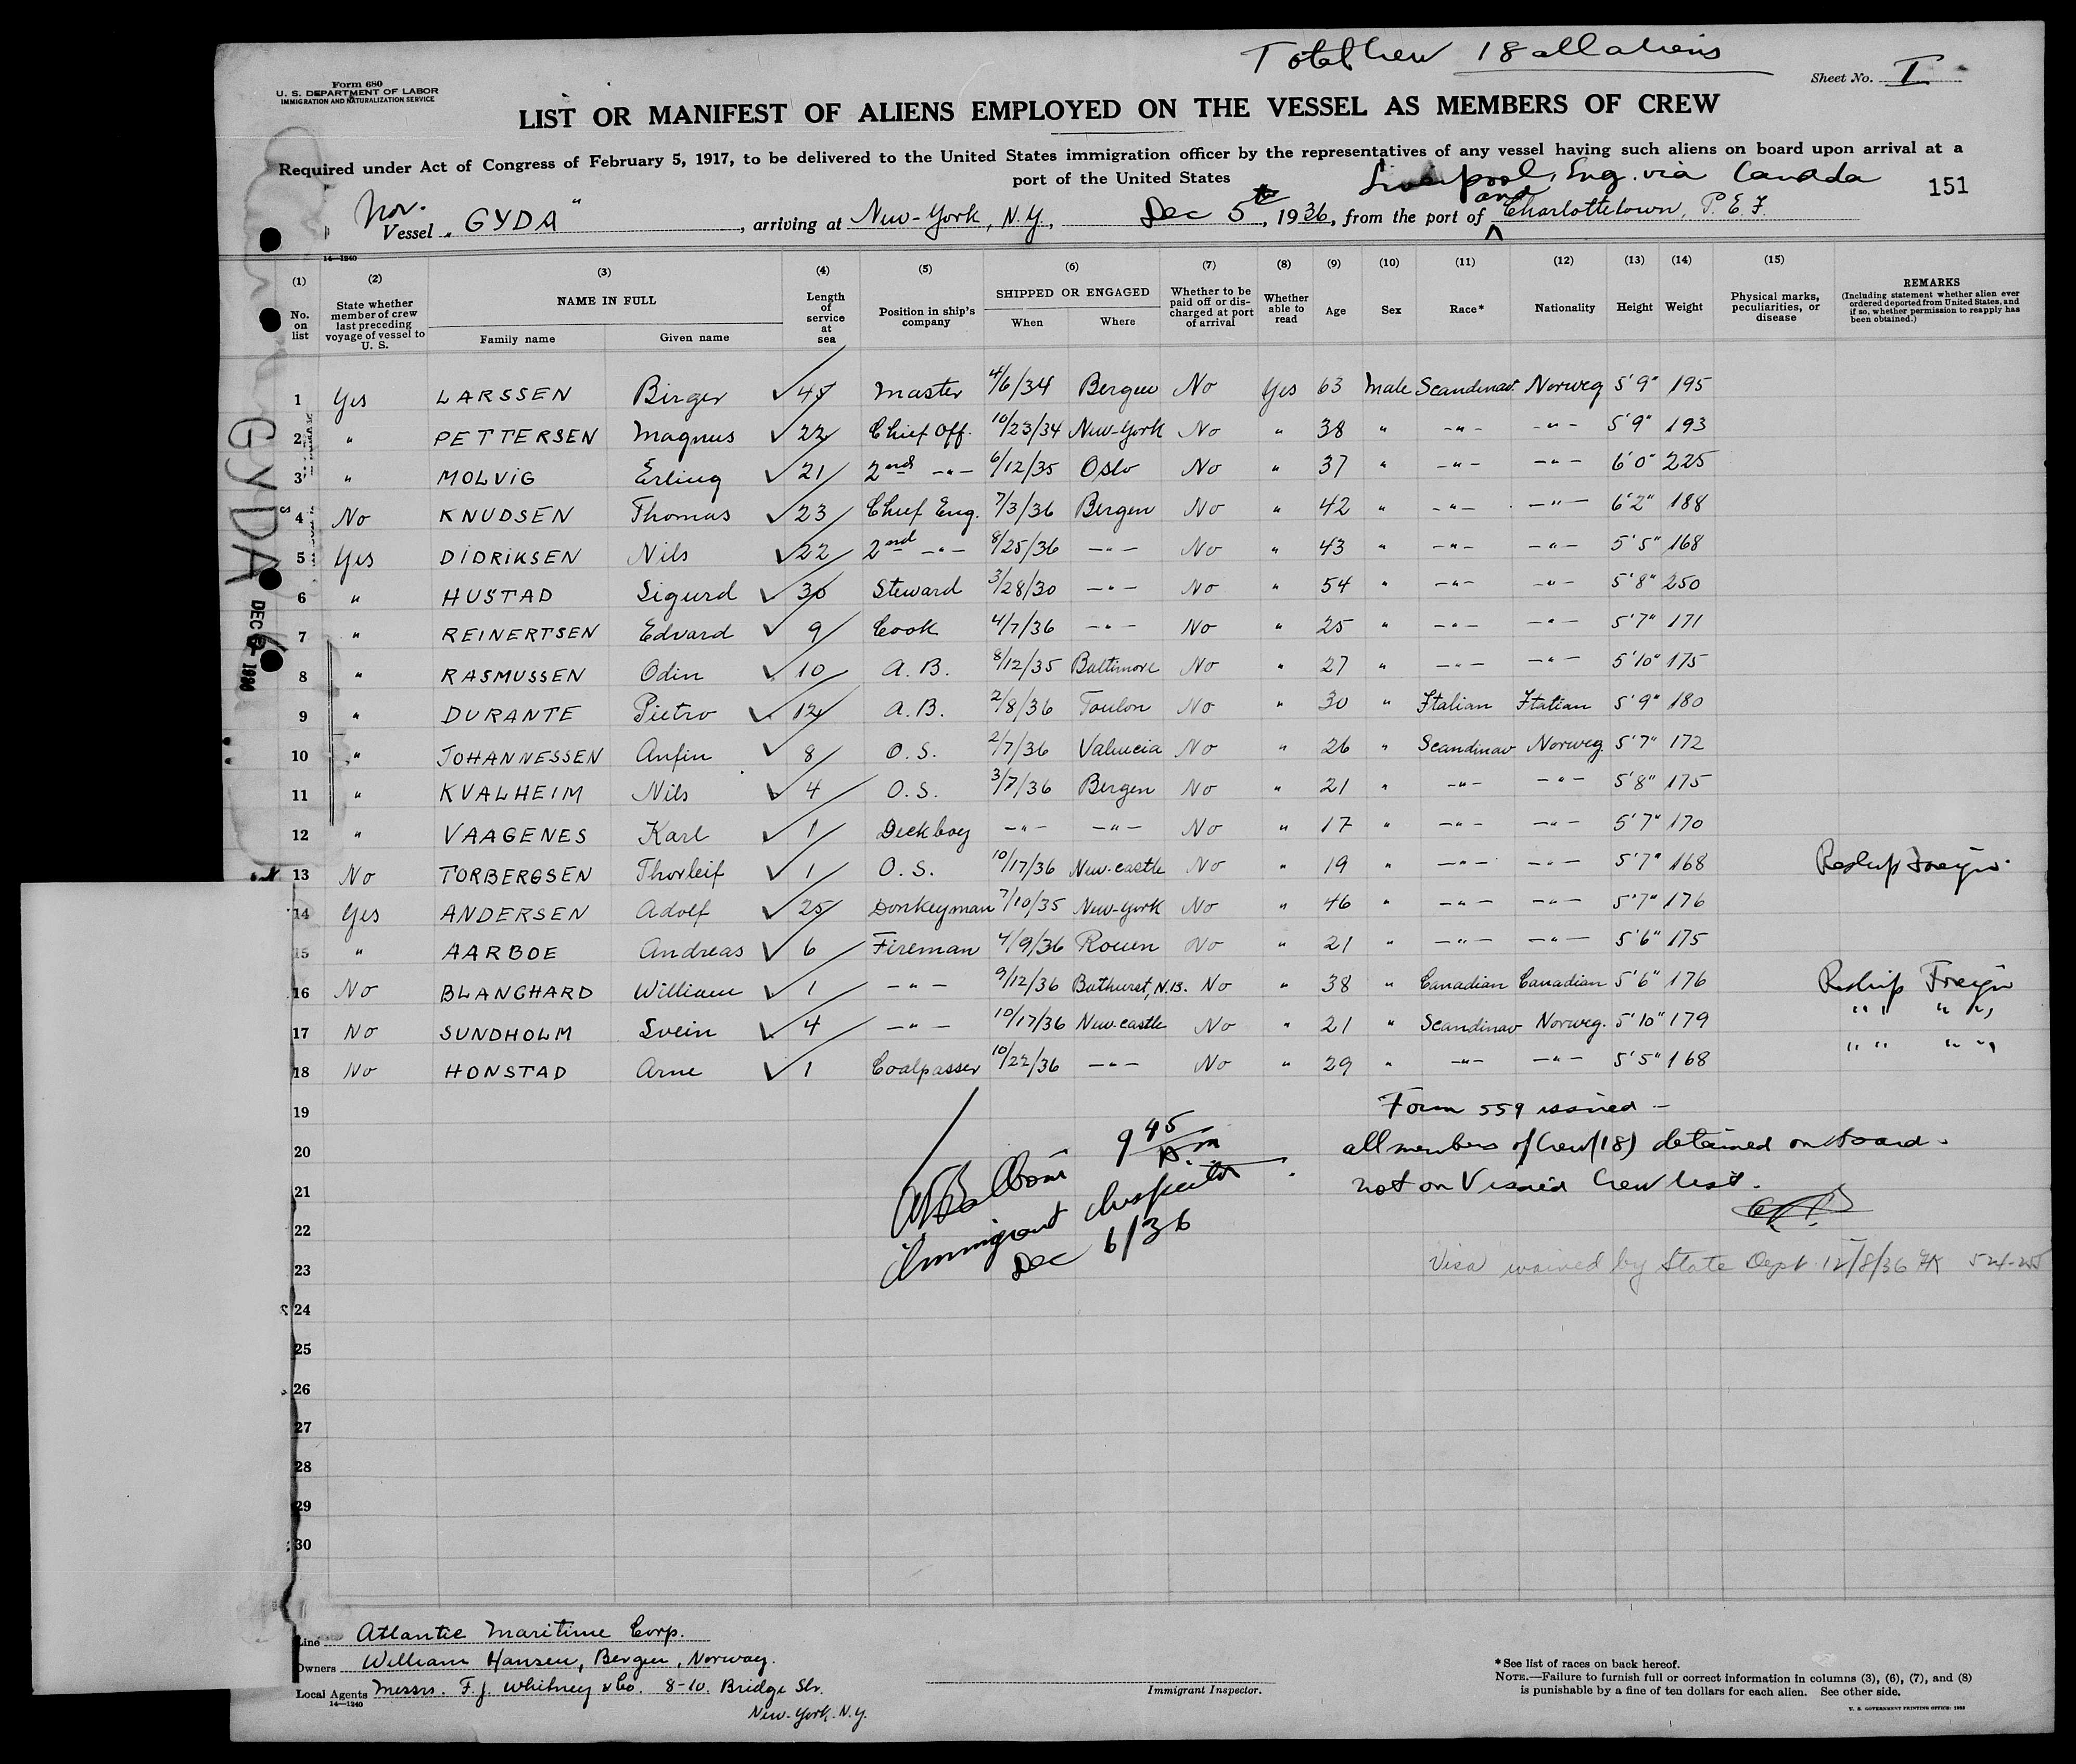 Total Crew 18 all aliens
Form 680
U. S. DEPARTMENT OF LABOR
IMMIGRATION AND NATURALIZATION SERVICE
Sheet No. I
LIST OR MANIFEST OF ALIENS EMPLOYED ON THE VESSEL AS MEMBERS OF CREW
Required under Act of Congress of February 5, 1917, to be delivered to the United States immigration officer by the representatives of any vessel having such aliens on board upon arrival at a
port of the United States
Liverpool, Eng. via Canada
and
151
Nor.
Vessel "GYDA", arriving at New-York, N.Y., Dec 5th, 1936, from the port of Charlottetown, P. E. I.
14—1240
(1) (2) (3) (4) (5) (6) (7) (8) (9) (10) (11) (12) (13) (14) (15)
No. on list
State whether member of crew last preceding voyage of vessel to U. S.
NAME IN FULL
Family name Given name
Length of service at sea
Position in ship's company
SHIPPED OR ENGAGED
When Where
Whether to be paid off or discharged at port of arrival
Whether able to read
Age Sex Race* Nationality Height Weight
Physical marks, peculiarities, or disease
REMARKS
(Including statement whether alien ever ordered deported from United States, and if so, whether permission to reapply has been obtained.)
1 Yes LARSSEN Birger 45 Master 4/6/34 Bergen No Yes 63 Male Scandinav. Norweg 5'9" 195
2 " PETTERSEN Magnus 22 Chief Off. 10/23/34 New-York No " 38 " -"- -"- 5'9" 193
3 " MOLVIG Erling 21 2nd -"- 6/12/35 Oslo No " 37 " -"- -"- 6'0" 225
4 No KNUDSEN Thomas 23 Chief Eng. 7/3/36 Bergen No " 42 " -"- -"- 6'2" 188
5 Yes DIDRIKSEN Nils 22 2nd -"- 8/25/36 -"- No " 43 " -"- -"- 5'5" 168
6 " HUSTAD Sigurd 30 Steward 3/28/30 -"- No " 54 " -"- -"- 5'8" 250
7 " REINERTSEN Edvard 9 Cook 4/7/36 -"- No " 25 " -"- -"- 5'7" 171
8 " RASMUSSEN Odin 10 A. B. 8/12/35 Baltimore No " 27 " -"- -"- 5'10" 175
9 " DURANTE Pietro 12 A. B. 2/8/36 Toulon No " 30 " Italian Italian 5'9" 180
10 " JOHANNESSEN Anfin 8 O. S. 2/7/36 Valencia No " 26 " Scandinav Norweg. 5'7" 172
11 " KVALHEIM Nils 4 O. S. 3/7/36 Bergen No " 21 " -"- -"- 5'8" 175
12 " VAAGENES Karl 1 Deckboy -"- -"- No " 17 " -"- -"- 5'7" 170
13 No TORBERGSEN Thorleif 1 O. S. 10/17/36 New-castle No " 19 " -"- -"- 5'7" 168 Reship Foreign
14 Yes ANDERSEN Adolf 25 Donkeyman 7/10/35 New-York No " 46 " -"- -"- 5'7" 176
15 " AARBOE Andreas 6 Fireman 4/9/36 Rouen No " 21 " -"- -"- 5'6" 175
16 No BLANCHARD William 1 -"- 9/12/36 Bathurst, N.B. No " 38 " Canadian Canadian 5'6" 176 Reship Foreign
17 No SUNDHOLM Svein 4 -"- 10/17/36 New-castle No " 21 " Scandinav Norweg. 5'10" 179 " " " "
18 No HONSTAD Arne 1 Coalpasser 10/22/36 -"- No " 29 " -"- -"- 5'5" 168 " " " "
19
20
21
22
23
24
25
26
27
28
29
30
Form 559 issued -
all members of Crew (18) detained on board.
not on Visaed Crew list.
9 45 A.m
Immigrant Inspector
Dec 6/36
Visa waived by State Dept. 12/8/36
GYDA
DEC 1936
Line Atlantic Maritime Corp.
Owners William Hansen, Bergen, Norway.
Local Agents Messrs. F. J. Whitney & Co. 8-10. Bridge Str.
New-York. N.Y.
14—1240
Immigrant Inspector.
*See list of races on back hereof.
NOTE.—Failure to furnish full or correct information in columns (3), (6), (7), and (8)
is punishable by a fine of ten dollars for each alien. See other side.